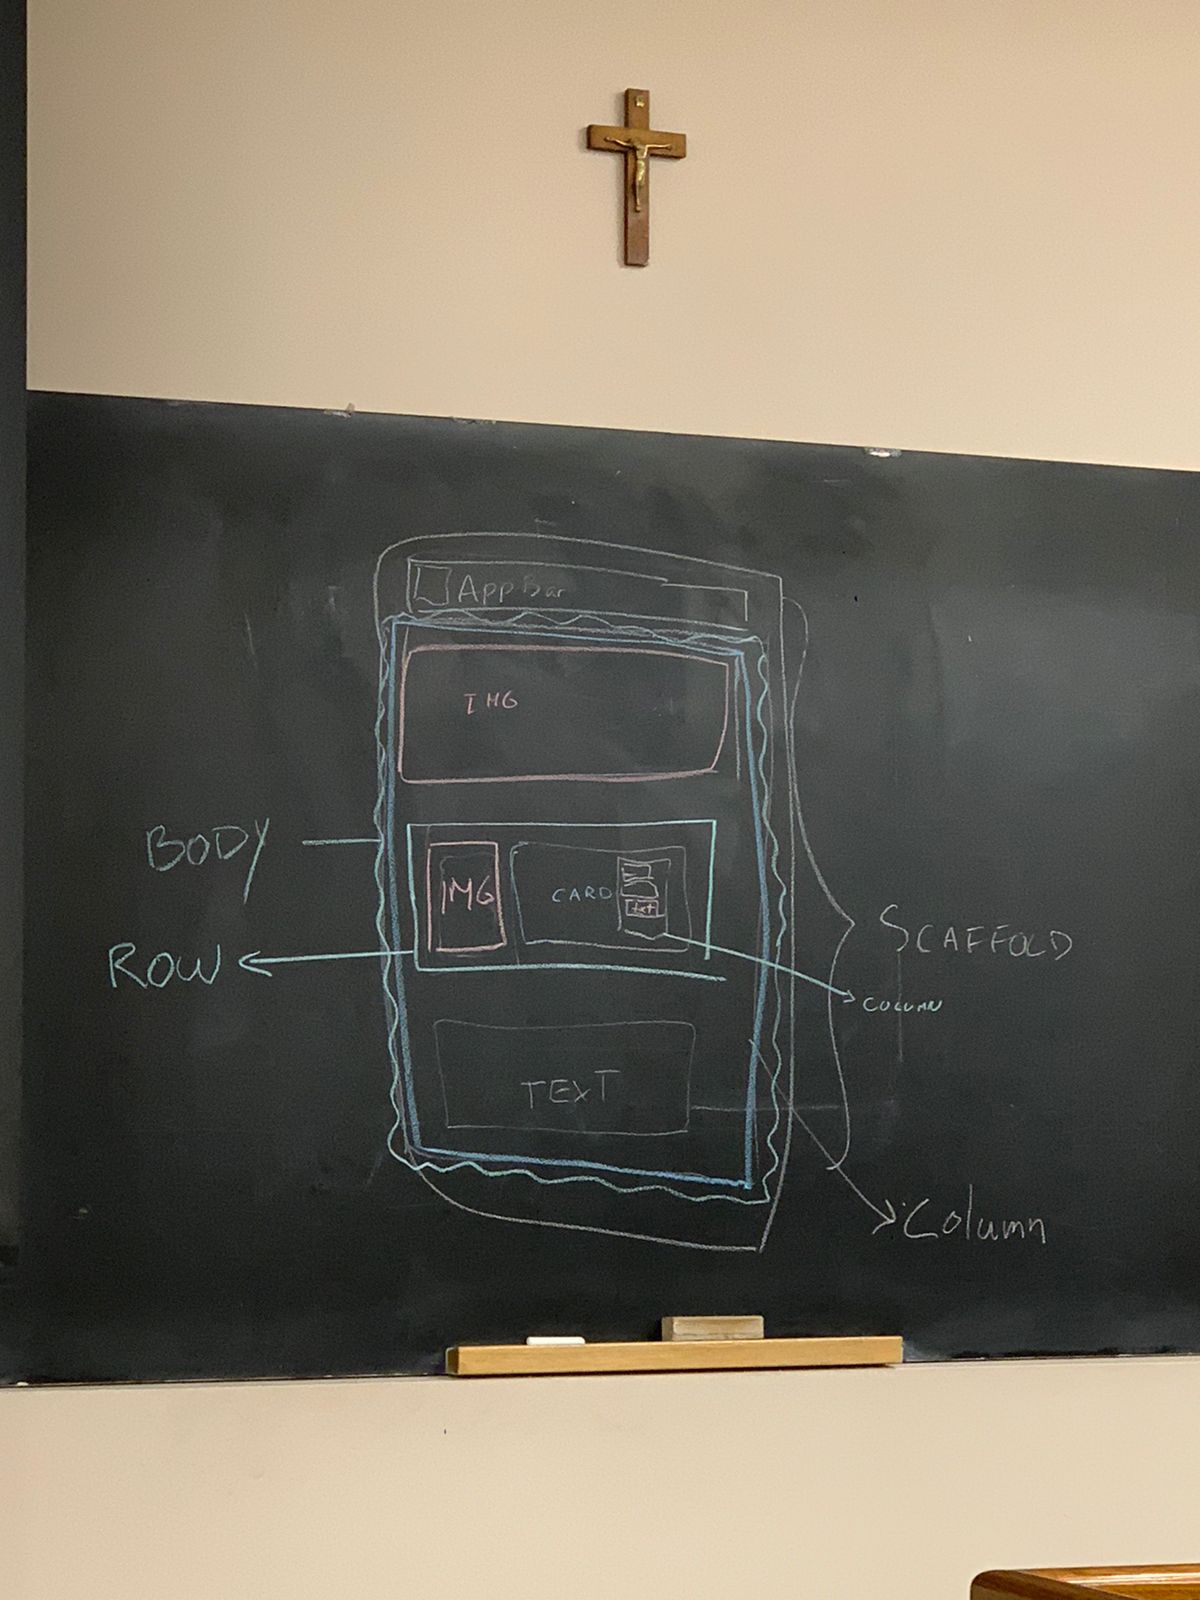 AppBar
IMG
BODY
IMG
CARD
txt
ROW
SCAFFOLD
COLUMN
TEXT
Column